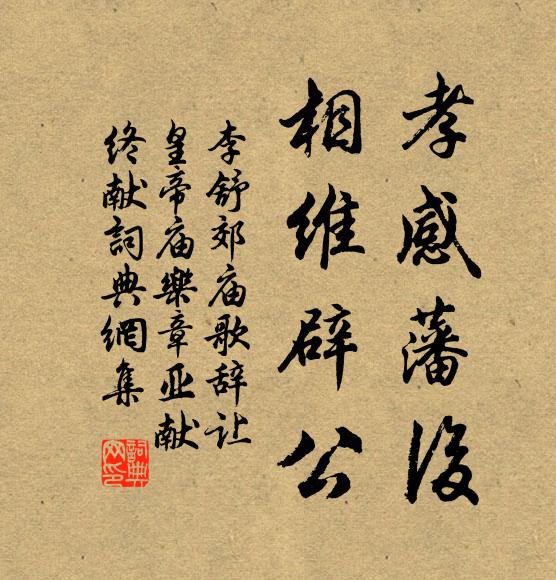 孝感藩後
相维辟公
李舒郊庙歌辞让
皇帝庙樂章亚献
终献詞典網集
詞典网印